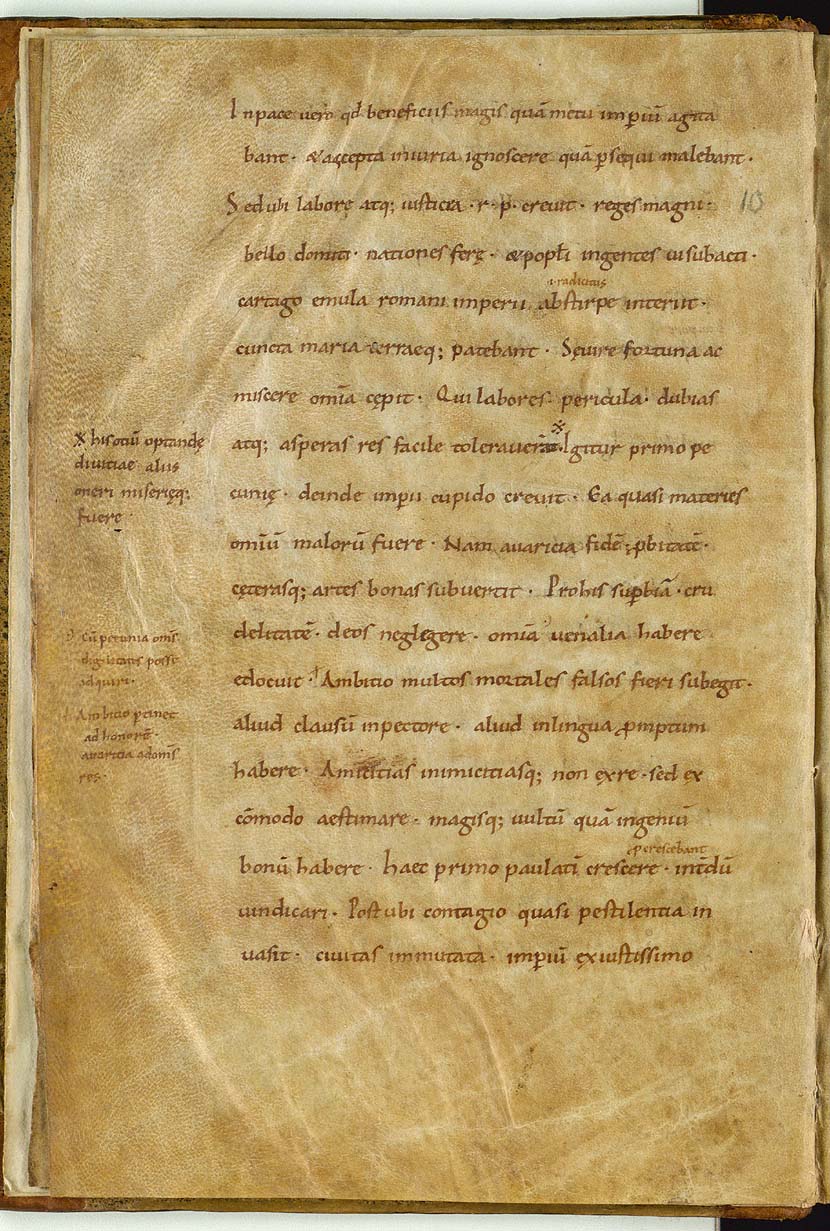 Inpace vero qđ beneficiis magis quā metu imꝑiū agita
bant · & accepta iniuria ignoscere quā ꝑsequi malebant ·
Sed ubi labore atq; iusticia · r · p · crevit · reges magni · 10
bello domiti · nationes ferę · & popłi ingentes vi subacti ·
i radicitus
cartago emula romani imperii abstirpe interiit ·
cuncta maria terraeq; patebant · Sęvire fortuna ac
miscere omīa cępit · Qui labores · pericula · dubias
atq; asperas res facile toleraver̄at · ※ Igitur primo pe
cunię · deinde imꝑii cupido crevit · Ea quasi materies
omīū malorū fuere · Nam avaricia fidē · ꝓbitatē ·
cęterasq; artes bonas subvertit · Prohis suꝑbiā · cru
delitatē · deos neglegere · omīa venalia habere
edocuit · Ambitio multos mortales falsos fieri subegit ·
aliud clausū inpectore · aliud inlingua ꝓmptum
habere · Amicitias inimicitiasq; non ex re · sed ex
cōmodo aestimare · magisq; vultū quā ingeniū
ꝓ crescebant
bonū habere · haec primo paulatī crescere · int̄dū
vindicari · Post ubi contagio quasi pestilentia in
vasit · civitas immutata · imꝑiū ex iustissimo
※ his otiū optandę
divitiae aliis
oneri miserięq;
fuere ·
Cū pecunia om̄s
dignitates posse
adquiri ·
Ambitio ꝑtinet
ad honorē ·
avaritia ad om̄s
res ·